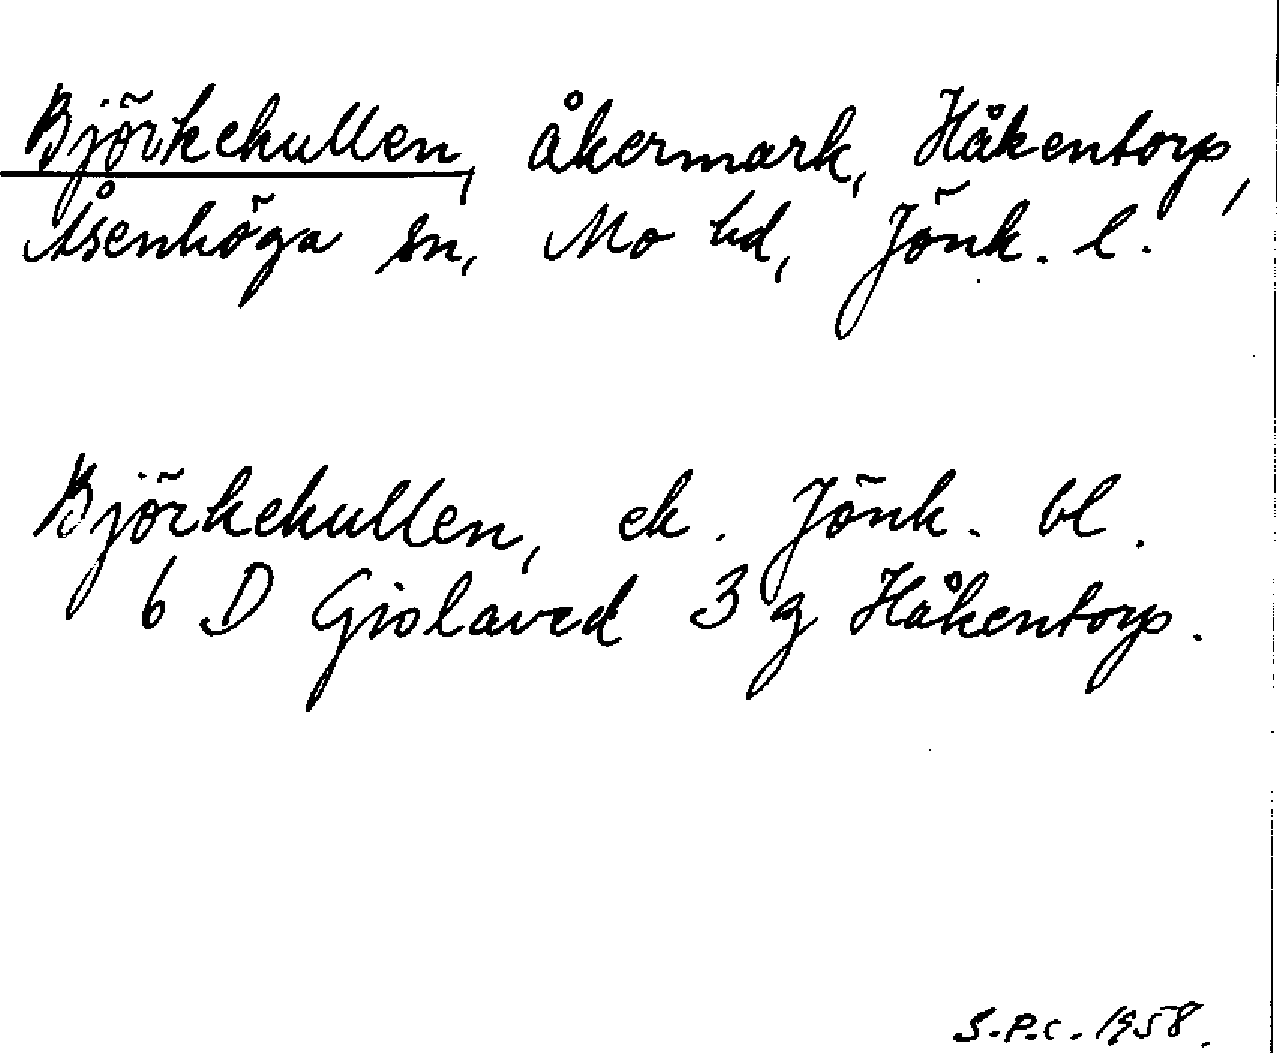 Björkekullen, åkermark, Håkentorp,
Åsenhöga sn, Mo hd, Jönk. l.
Björkekullen, ek. Jönk. bl.
6 D Gislaved 3 g Håkentorp.
S.P.C. 1958.